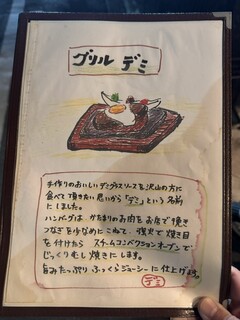 グリル デミ
手作りのおいしいデミグラスソースを沢山の方に
食べて頂きたい思いから「デミ」という名前
にしました。
ハンバーグは、かたまりのお肉をお店で挽き
つなぎを少なめにこねて、強火で焼き目
を付けたら スチームコンベクションオーブンで
じっくりむし焼きにします。
旨みたっぷりふっくらジューシーに仕上げます。
デミ